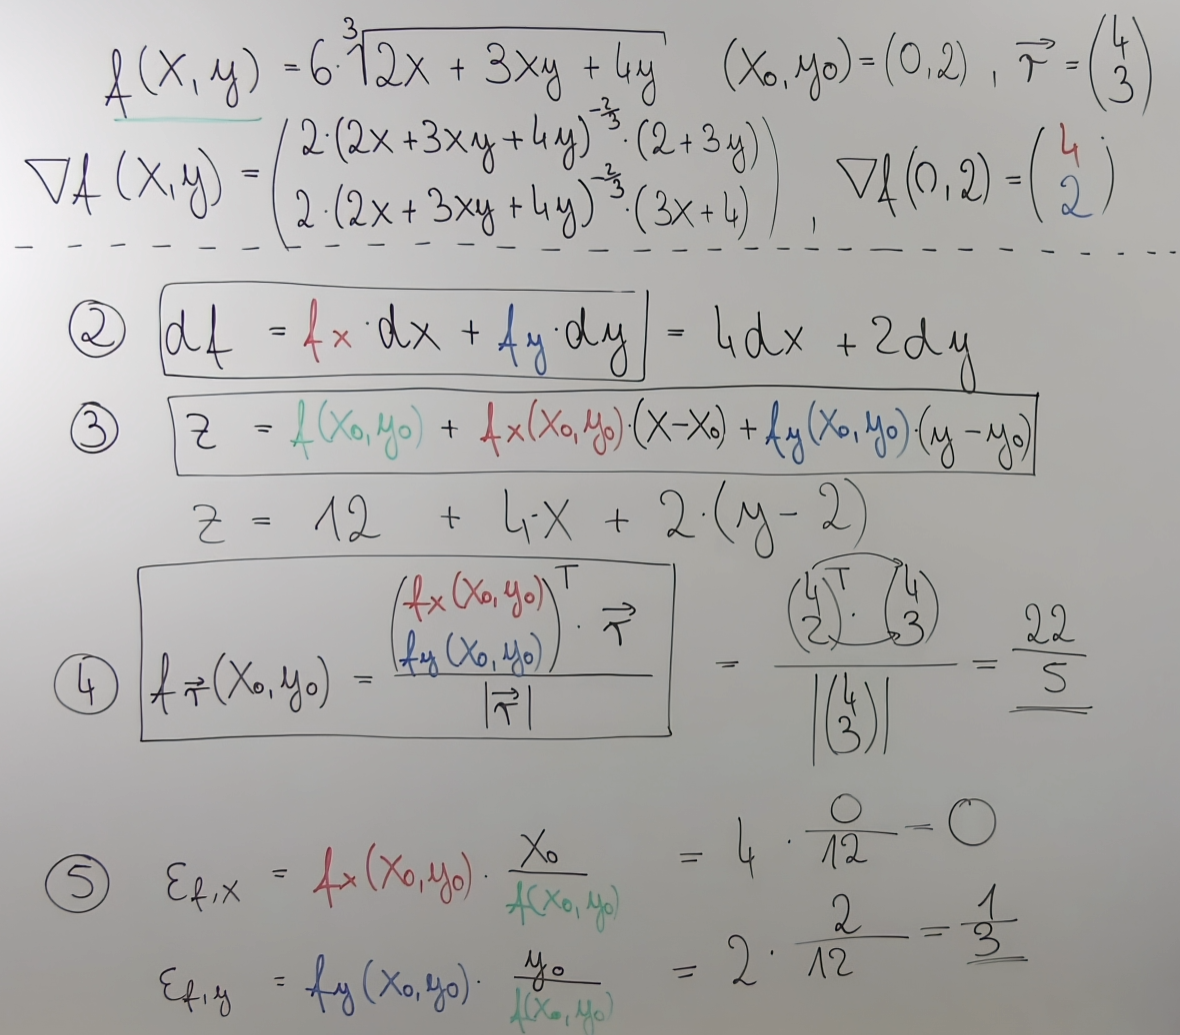 f(x,y) = 6·∛(2x + 3xy + 4y) (x₀,y₀) = (0,2), r⃗ = (4 3)
∇f(x,y) = (2·(2x+3xy+4y)^(-2/3)·(2+3y) 2·(2x+3xy+4y)^(-2/3)·(3x+4)), ∇f(0,2) = (4 2)
② df = fx·dx + fy·dy = 4dx + 2dy
③ z = f(x₀,y₀) + fx(x₀,y₀)·(x-x₀) + fy(x₀,y₀)·(y-y₀)
z = 12 + 4·x + 2·(y-2)
④ f r⃗(x₀,y₀) = (fx(x₀,y₀) fy(x₀,y₀))ᵀ · r⃗ / |r⃗| = (4 2)ᵀ · (4 3) / |(4 3)| = 22/5
⑤ εf,x = fx(x₀,y₀) · x₀/f(x₀,y₀) = 4 · 0/12 = 0
εf,y = fy(x₀,y₀) · y₀/f(x₀,y₀) = 2 · 2/12 = 1/3